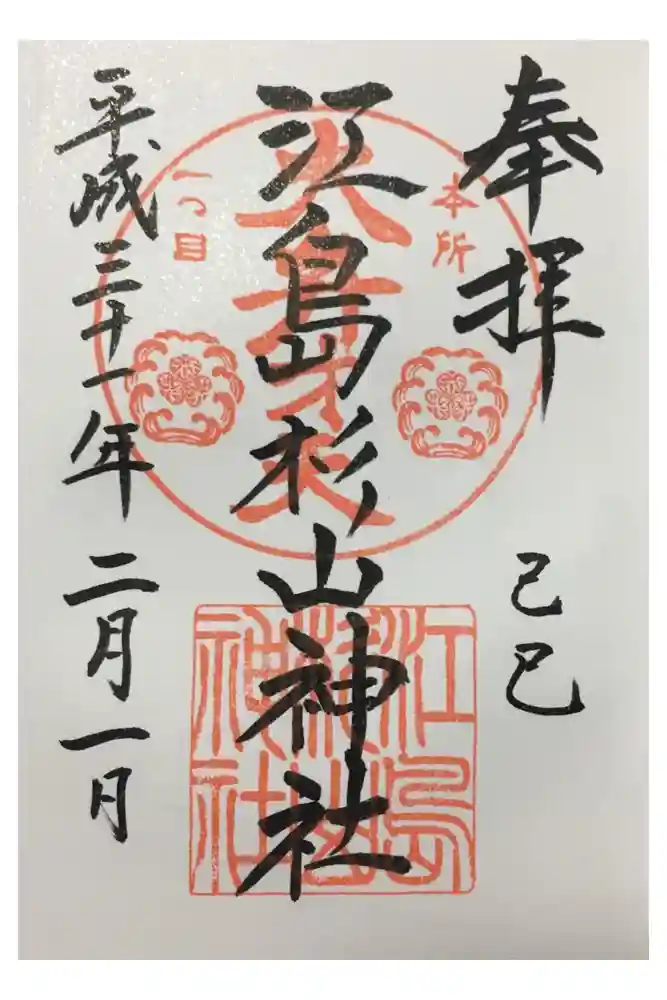 奉拝
己巳
本所
一つ目
江島杉山神社
大弁才天
江島
杉山
神社
平成三十一年二月一日